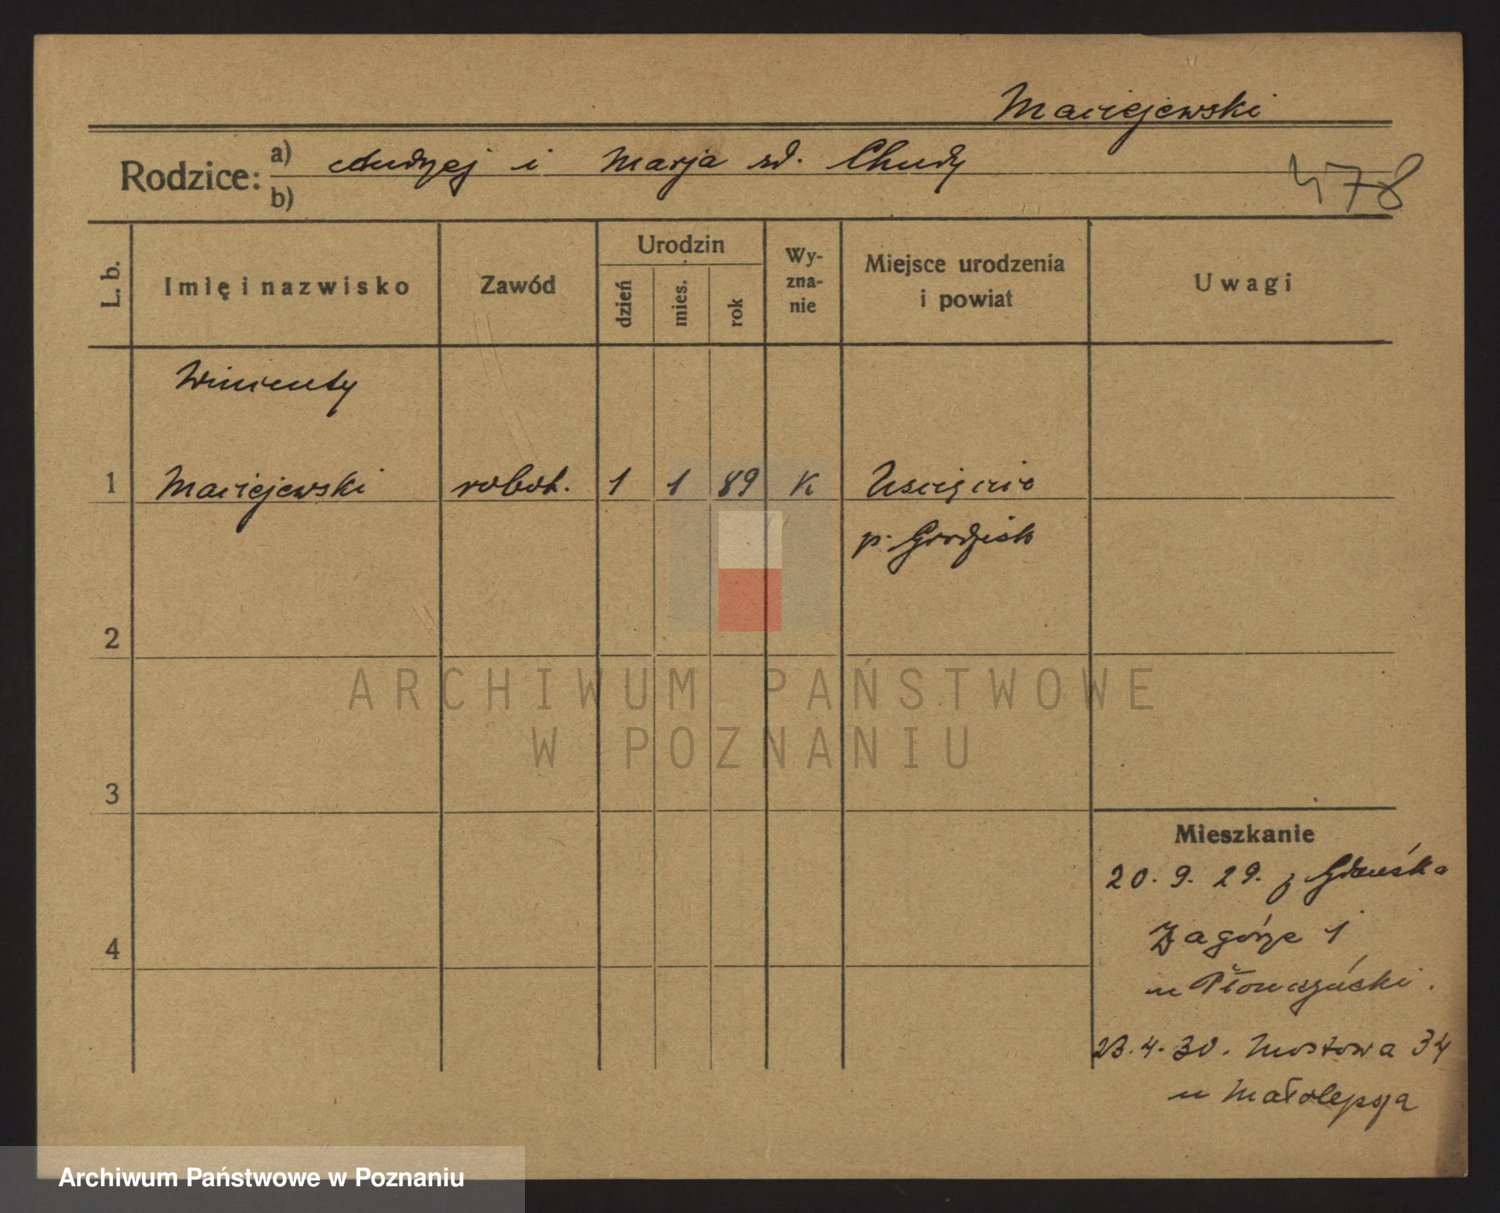 Maciejewski
Rodzice: a) Andrzej i Marja zd. Chudy
b)
478
L. b.
Imię i nazwisko
Zawód
Urodzin
dzień
mies.
rok
Wy-
zna-
nie
Miejsce urodzenia
i powiat
Uwagi
Wincenty
1 Maciejewski robot. 1 1 89 K Uścięcice
p. Grodzisk
2
3
4
Mieszkanie
20. 9. 29. z Gdańska
Zagórze 1
u Płonczyński.
23. 4. 30. Mostowa 34
u Małolepsza
ARCHIWUM PAŃSTWOWE
W POZNANIU
Archiwum Państwowe w Poznaniu